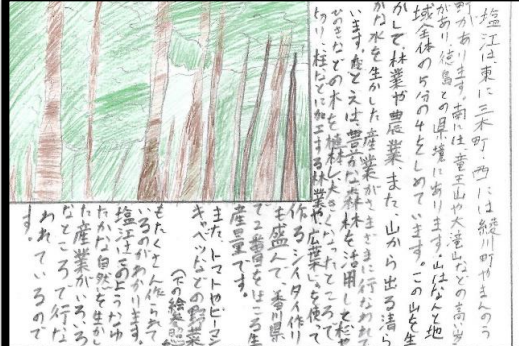 塩江は東に三木町・西には綾川町やまんのう
町があります。南には、竜王山や大滝山などの高い山
があり、徳島との県境にあります。山はなんと地
域全体の5分の4をしめています。この山を生
かして、林業や農業、また、山から出る清ら
かな水を生かした産業がさまざまに行なわれて
います。たとえば、豊かな森林を活用し、杉や
ひのきなどの木を植林し、大きくなったところで
切り、柱などに加工する林業や、広葉じゅを使って
作るシイタイ作り
も盛んで、香川県
で2番をほこる生
産量です。
また、トマトやピーマン
キャベツなどの野菜
もたくさん作られて
いるのがわかります。
(下の絵参照)
塩江はこのようなゆ
たかな自然を生かし
た産業がいろいろ
なところで行な
われているので
す